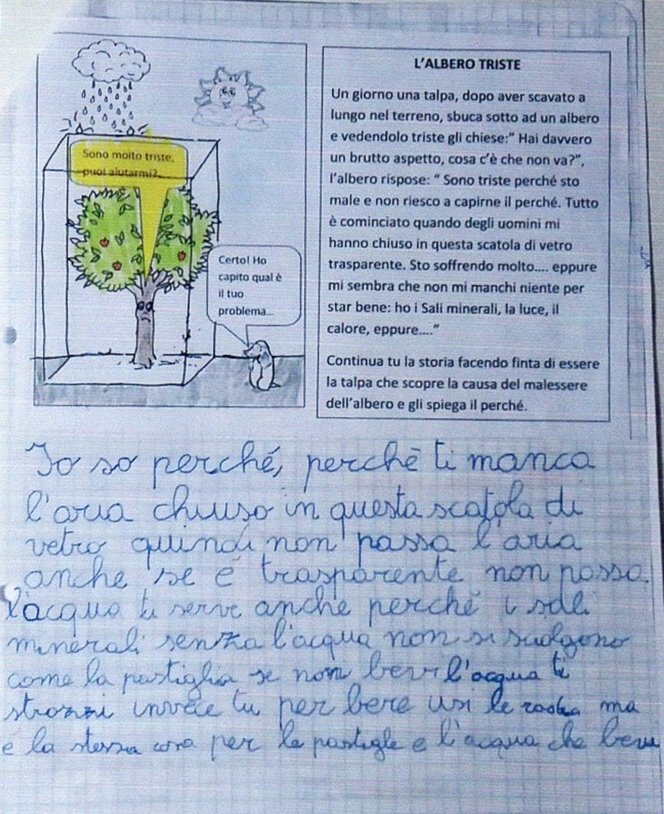 Sono molto triste,
puoi aiutarmi?
Certo! Ho
capito qual è
il tuo
problema...
L'ALBERO TRISTE
Un giorno una talpa, dopo aver scavato a
lungo nel terreno, sbuca sotto ad un albero
e vedendolo triste gli chiese:" Hai davvero
un brutto aspetto, cosa c'è che non va?",
l'albero rispose: " Sono triste perché sto
male e non riesco a capirne il perché. Tutto
è cominciato quando degli uomini mi
hanno chiuso in questa scatola di vetro
trasparente. Sto soffrendo molto.... eppure
mi sembra che non mi manchi niente per
star bene: ho i Sali minerali, la luce, il
calore, eppure...."
Continua tu la storia facendo finta di essere
la talpa che scopre la causa del malessere
dell'albero e gli spiega il perché.
Io so perché, perché ti manca
l'aria chiuso in questa scatola di
vetro quindi non passa l'aria
anche se é trasparente non passa
l'acqua ti serve anche perché i sali
minerali senza l'acqua non si sciolgono
come la pastiglia se non bevi l'acqua ti
strozzi invece tu per bere usi le ma
e la stessa cosa per le pastigle e l'acqua che bevi